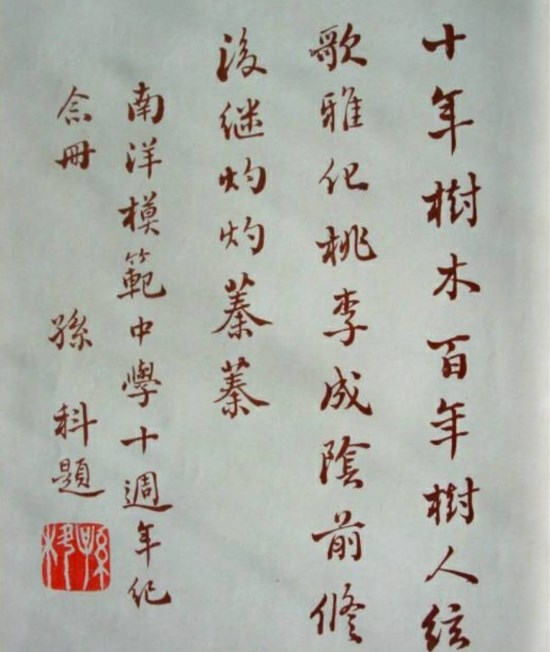 十年樹木百年樹人弦
歌雅化桃李成陰前修
後继灼灼蓁蓁
南洋模範中學十週年紀
念冊 孫科題
孫科印